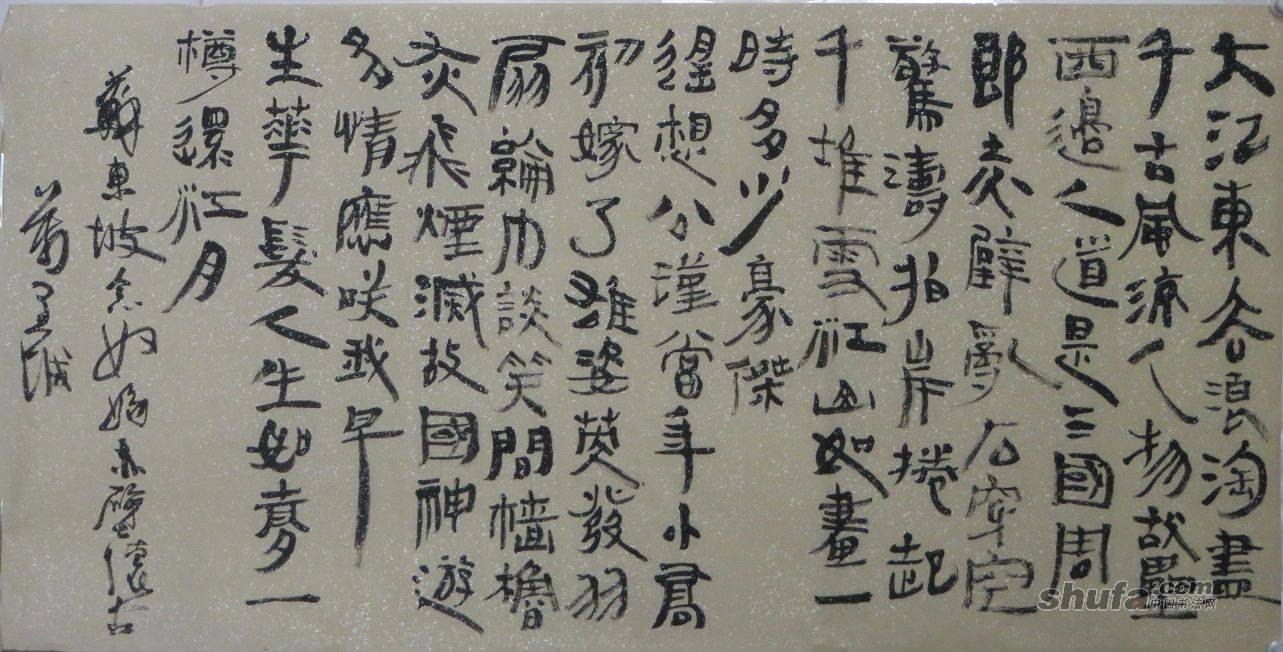 大江東去浪淘盡
千古風流人物故壘
西邊人道是三國周
郎赤壁亂石穿空
驚濤拍岸捲起
千堆雪江山如畫一
時多少豪傑
遥想公瑾當年小喬
初嫁了雄姿英發羽
扇綸巾談笑間檣櫓
灰飛煙滅故國神遊
多情應咲我早
生華髮人生如夢一
樽還江月
蘇東坡念奴嬌赤壁懷古
shufa.com
中国书法网